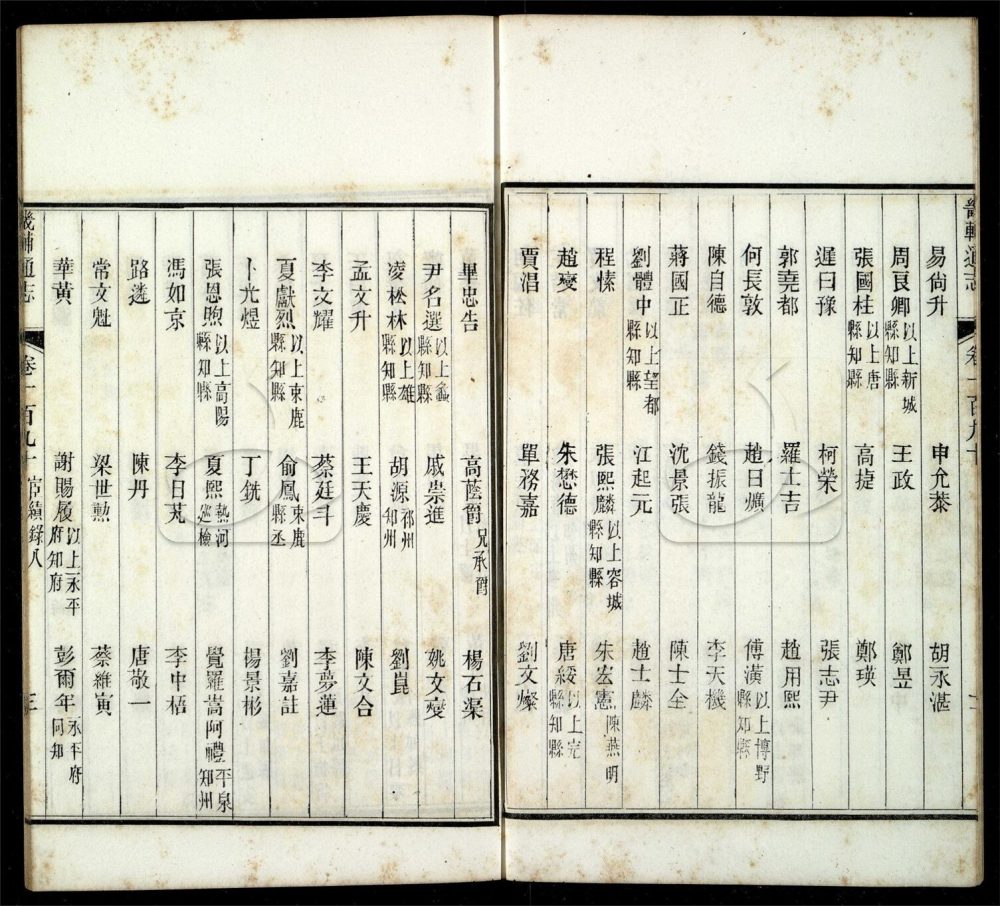 畿輔通志
卷一百九十
二
易尙升 申允恭 胡永湛
周良卿以上新城縣知縣 王政 鄭昱
張國桂以上唐縣知縣 高捷 鄭瑛
遲日豫 柯榮 張志尹
郭堯都 羅士吉 趙用熙
何長敦 趙日爌 傅潢以上博野縣知縣
陳自德 錢振龍 李天機
蔣國正 沈景張 陳士全
劉體中以上望都縣知縣 江起元 趙士麟
程愫 張熙麟以上容城縣知縣 朱宏憲陳燕明
趙燮 朱懋德 唐綏以上完縣知縣
賈淐 單務嘉 劉文燦
畢忠告 高蔭爵兄承爵 楊石渠
尹名選以上蠡縣知縣 戚崇進 姚文燮
凌松林以上雄縣知縣 胡源祁州知州 劉崑
孟文升 王天慶 陳文合
李文耀 蔡廷斗 李夢蓮
夏獻烈以上束鹿縣知縣 俞鳳束鹿縣丞 劉嘉註
卜光煜 丁銑 楊景彬
張恩煦以上高陽縣知縣 夏熙熱河巡檢 覺羅嵩阿禮平泉知州
馮如京 李日芃 李中梧
路遴 陳丹 唐敬一
常文魁 梁世勲 蔡維寅
華黃 謝賜履以上永平府知府 彭爾年永平府同知
畿輔通志
卷一百九十 宦績錄八
三